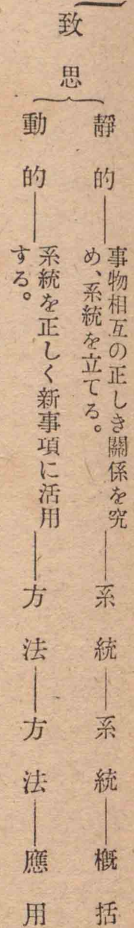 致思
靜的——事物相互の正しき關係を究
め、系統を立てる。——系統——系統——概括
動的——系統を正しく新事項に活用
する。——方法——方法——應用